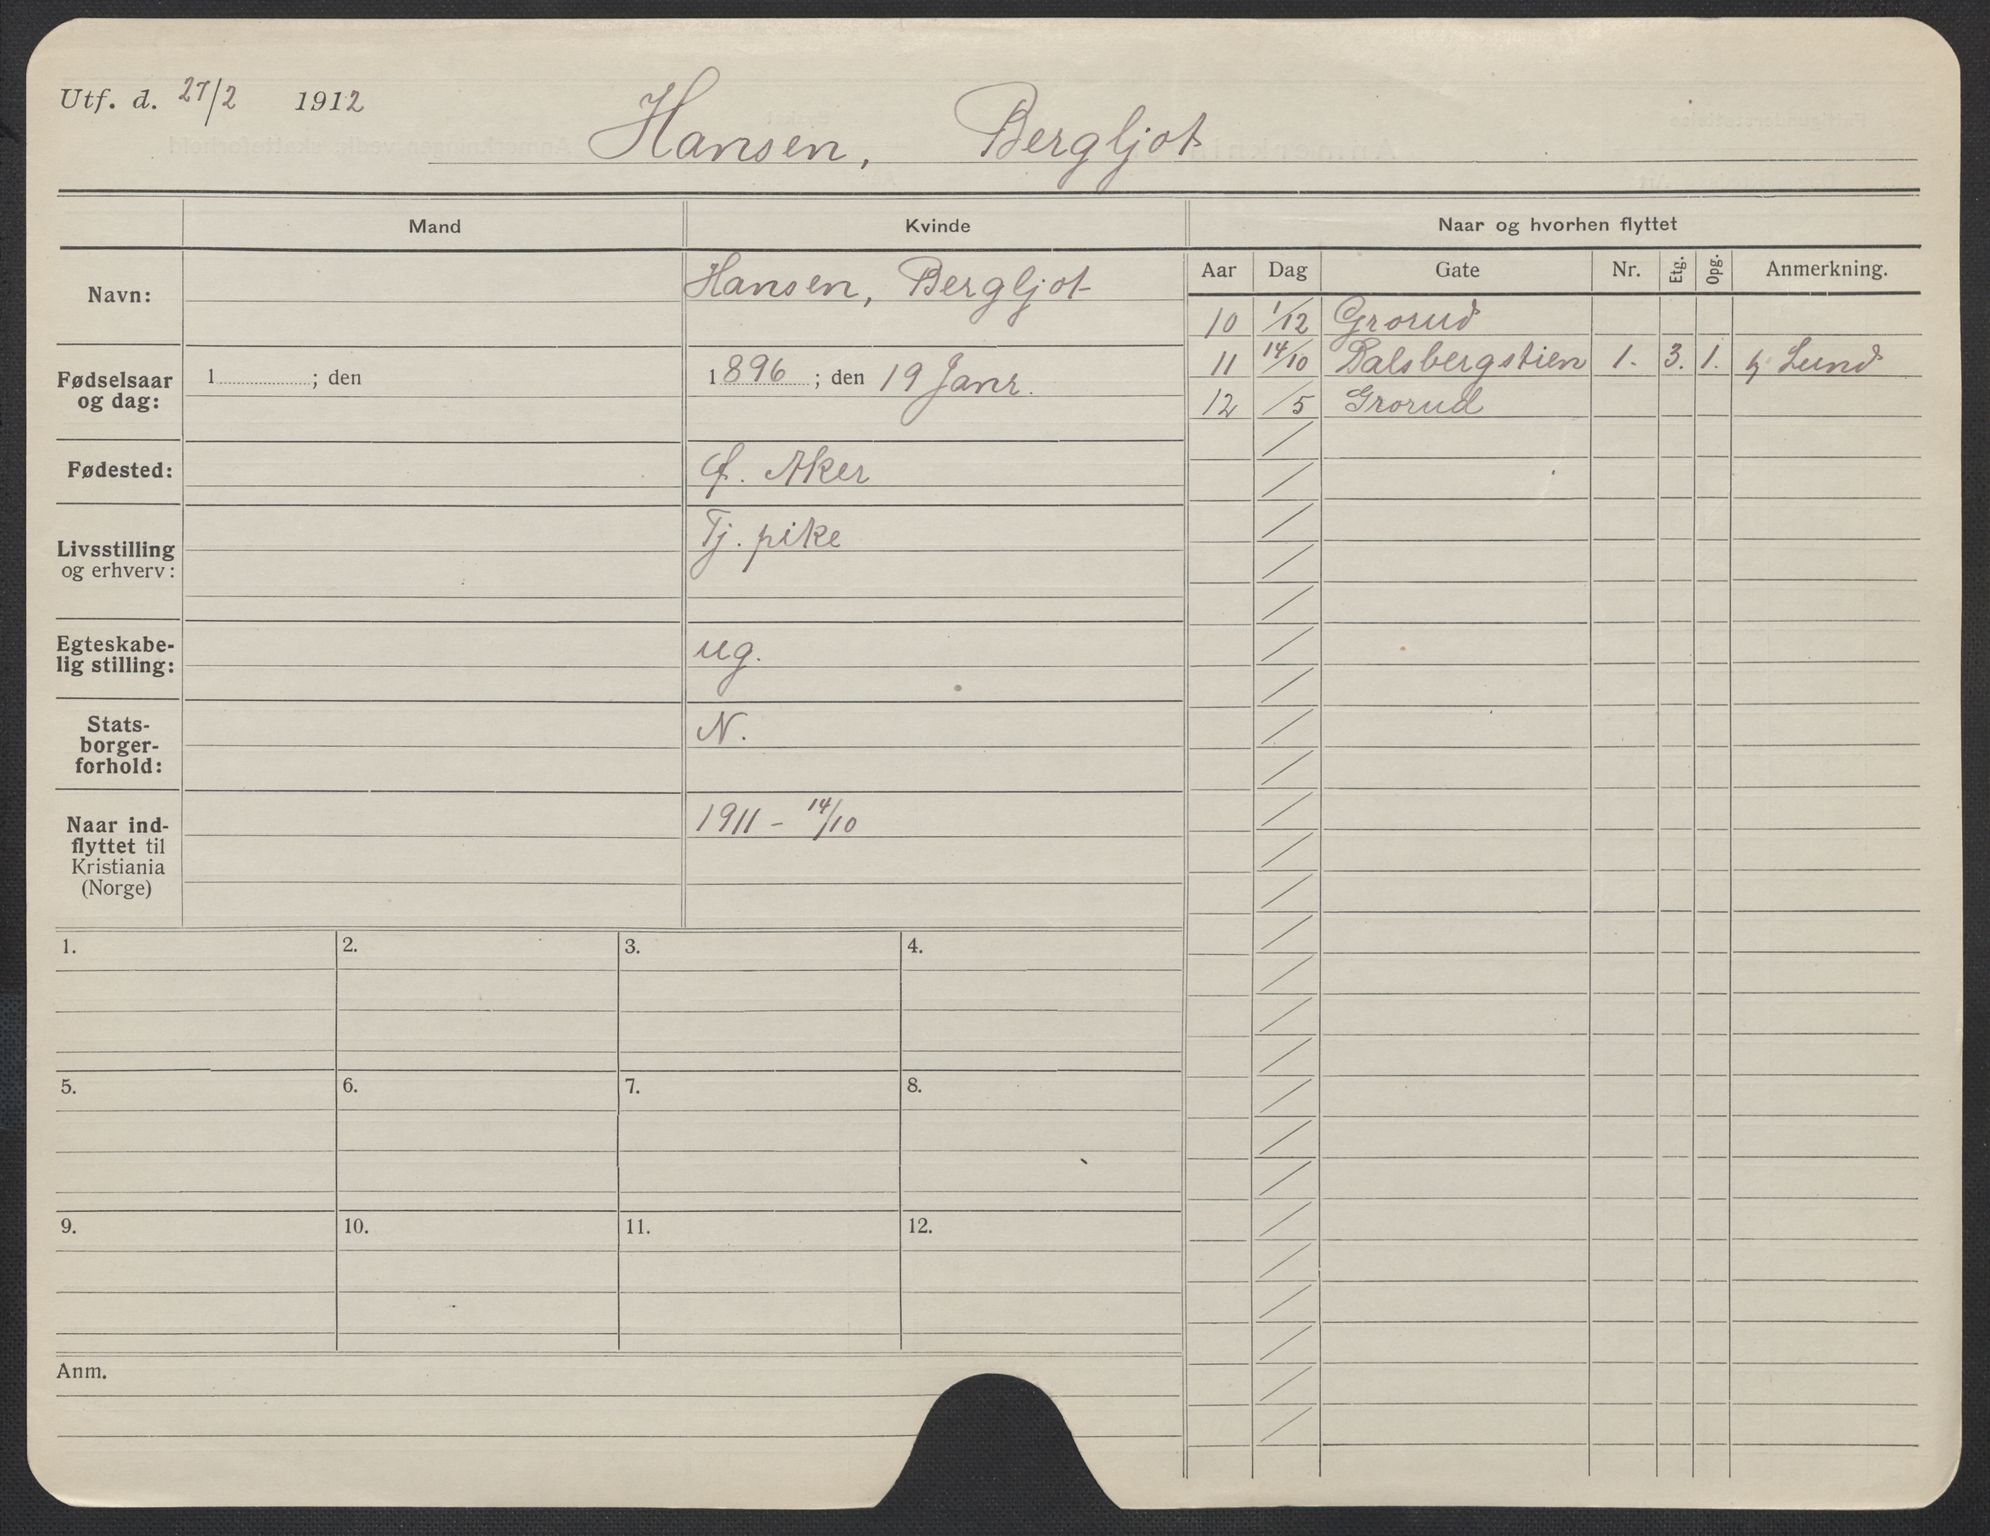 Utf. d. 27/2 1912
Hansen, Bergljot
Mand
Kvinde
Naar og hvorhen flyttet
Aar Dag Gate Nr. Etg. Opg. Anmerkning.
Navn: Hansen, Bergljot
Fødselsaar og dag: 1 ; den
1896 ; den 19 Janr.
Fødested: Ø. Aker
Livsstilling og erhverv: Tj. pike
Egteskabe-
lig stilling: ug.
Stats-
borger-
forhold: N.
Naar ind-
flyttet til
Kristiania
(Norge) 1911 - 14/10
10 1/12 Grorud
11 14/10 Dalsbergstien 1. 3. 1. hj. Lund
12 /5 Grorud
1. 2. 3. 4.
5. 6. 7. 8.
9. 10. 11. 12.
Anm.